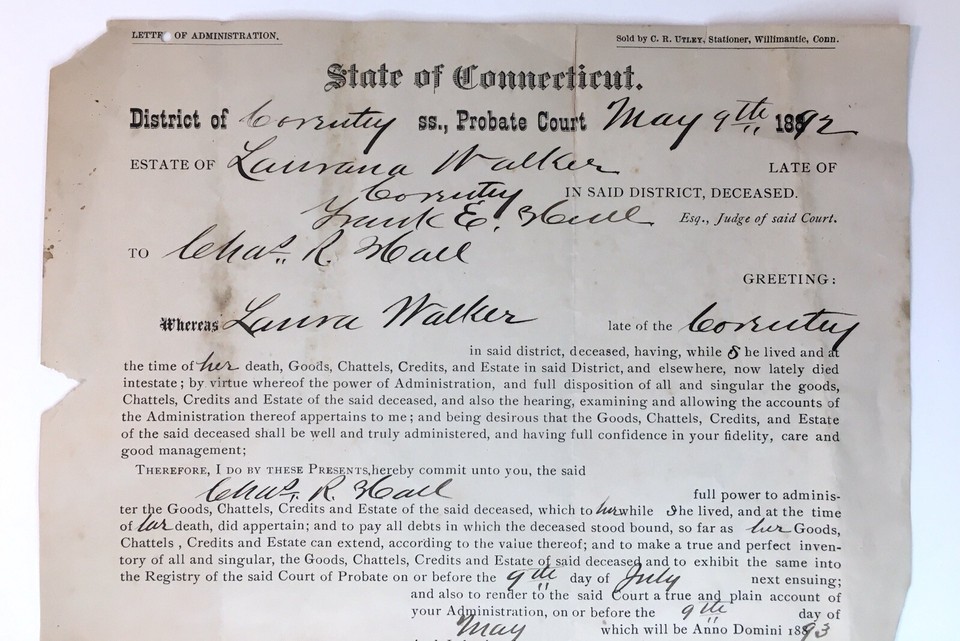 LETTER OF ADMINISTRATION.
Sold by C. R. UTLEY, Stationer, Willimantic, Conn.
State of Connecticut.
District of Coventry ss., Probate Court May 9th 1892
ESTATE OF Laurana Walker LATE OF
Coventry IN SAID DISTRICT, DECEASED.
Frank E. Hull Esq., Judge of said Court.
TO Chas. R. Hall
GREETING:
Whereas Laura Walker late of the Coventry
in said district, deceased, having, while She lived and at
the time of her death, Goods, Chattels, Credits, and Estate in said District, and elsewhere, now lately died
intestate; by virtue whereof the power of Administration, and full disposition of all and singular the goods,
Chattels, Credits and Estate of the said deceased, and also the hearing, examining and allowing the accounts of
the Administration thereof appertains to me; and being desirous that the Goods, Chattels, Credits, and Estate
of the said deceased shall be well and truly administered, and having full confidence in your fidelity, care and
good management;
THEREFORE, I DO BY THESE PRESENTS, hereby commit unto you, the said
Chas. R. Hall full power to adminis-
ter the Goods, Chattels, Credits and Estate of the said deceased, which to her while She lived, and at the time
of her death, did appertain; and to pay all debts in which the deceased stood bound, so far as her Goods,
Chattels, Credits and Estate can extend, according to the value thereof; and to make a true and perfect inven-
tory of all and singular, the Goods, Chattels, Credits and Estate of said deceased and to exhibit the same into
the Registry of the said Court of Probate on or before the 9th day of July next ensuing;
and also to render to the said Court a true and plain account of
your Administration, on or before the 9th day of
May which will be Anno Domini 1893